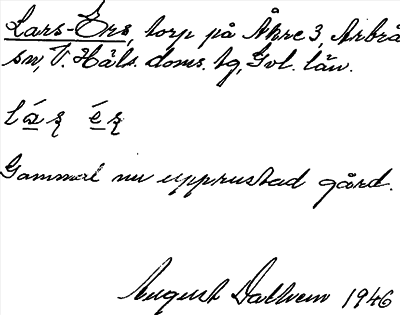 Lars-Ers, torp på Åkre 3, Arbrå
sn, V. Häls. doms. tg, Gvl. län.
Gammal nu upprustad gård.
August Dallvem 1946